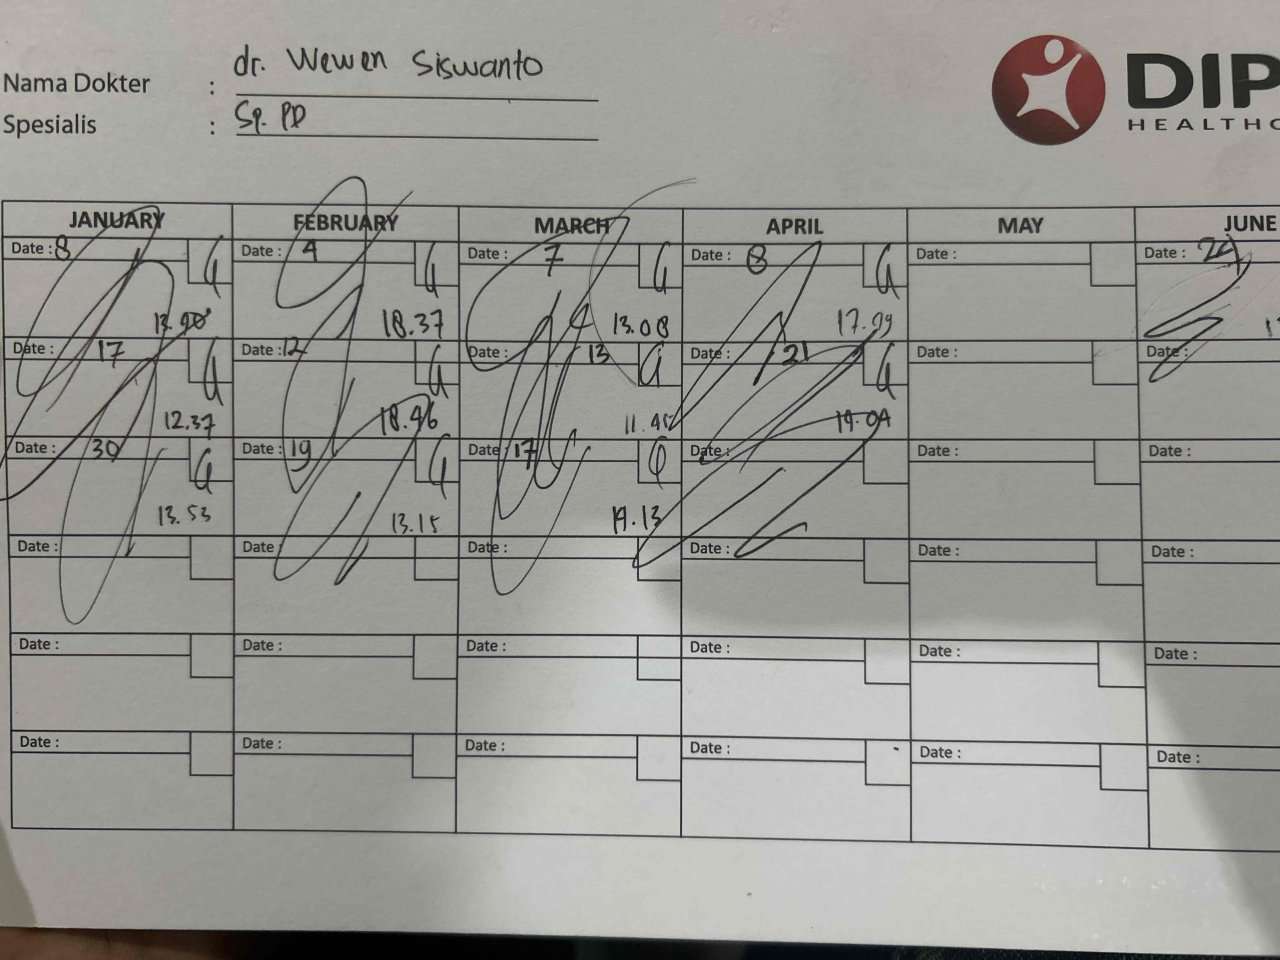 Nama Dokter : dr. Wewen Siswanto
Spesialis : Sp. PD
DIP
HEALTHC
JANUARY FEBRUARY MARCH APRIL MAY JUNE
Date : 8 Date : 4 Date : 7 Date : 8 Date : Date : 24
18.37 13.08
Date : 17 Date : 12 Date : 13 Date : 21 Date : Date :
12.37 18.46
Date : 30 Date : 19 Date : 17 Date : Date : Date :
13.53 13.15 19.13
Date : Date : Date : Date : Date : Date :
Date : Date : Date : Date : Date : Date :
Date : Date : Date : Date : Date : Date :